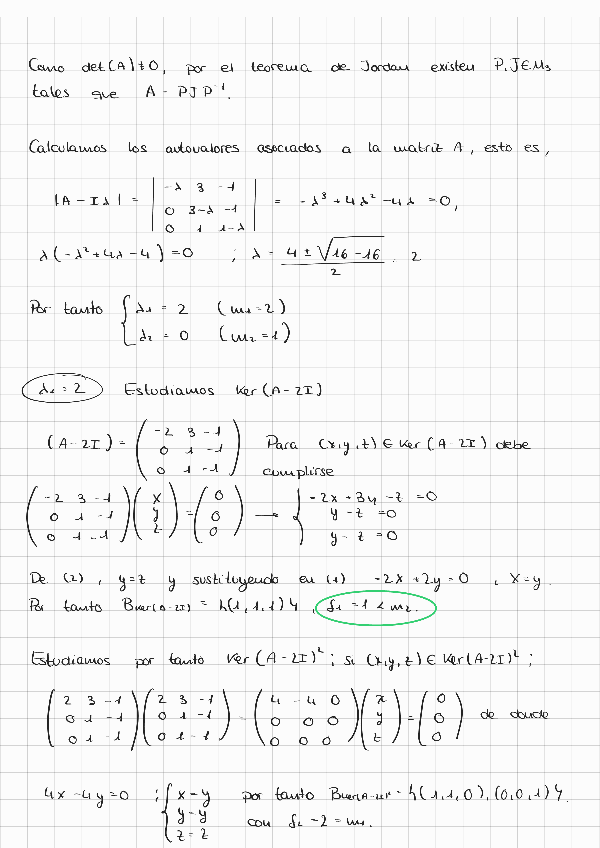 Como det(A)≠0, por el teorema de Jordan existen P,J∈M₃
tales que A = PJP⁻¹.
Calculamos los autovalores asociados a la matriz A, esto es,
|A-Iλ| = | -λ 3 -1 | = -λ³+4λ²-4λ = 0,
0 3-λ -1
0 1 1-λ
λ(-λ²+4λ-4) = 0 ; λ = (4 ± √(16-16))/2 = 2
Por tanto { λ₁ = 2 (m₁=2)
λ₂ = 0 (m₂=1)
λ₁=2 Estudiamos Ker(A-2I)
(A-2I) = ( -2 3 -1 ) Para (x,y,z) ∈ Ker(A-2I) debe
0 1 -1
0 1 -1 cumplirse
( -2 3 -1 ) ( x ) = ( 0 ) → { -2x+3y-z = 0
0 1 -1 y 0 y-z = 0
0 1 -1 z 0 y-z = 0
De (2), y=z y sustituyendo en (1) -2x+2y=0, x=y.
Por tanto B Ker(A-2I) = {(1,1,1)}, δ₁ = 1 < m₁.
Estudiamos por tanto Ker(A-2I)²; si (x,y,z) ∈ Ker(A-2I)²;
( 2 3 -1 ) ( 2 3 -1 ) = ( 4 -4 0 ) ( x ) = ( 0 ) de donde
0 1 -1 0 1 -1 0 0 0 y 0
0 1 -1 0 1 -1 0 0 0 z 0
4x-4y=0 ; { x=y por tanto B Ker(A-2I)² = {(1,1,0),(0,0,1)}.
y=y
z=z con δ₂=2=m₁.